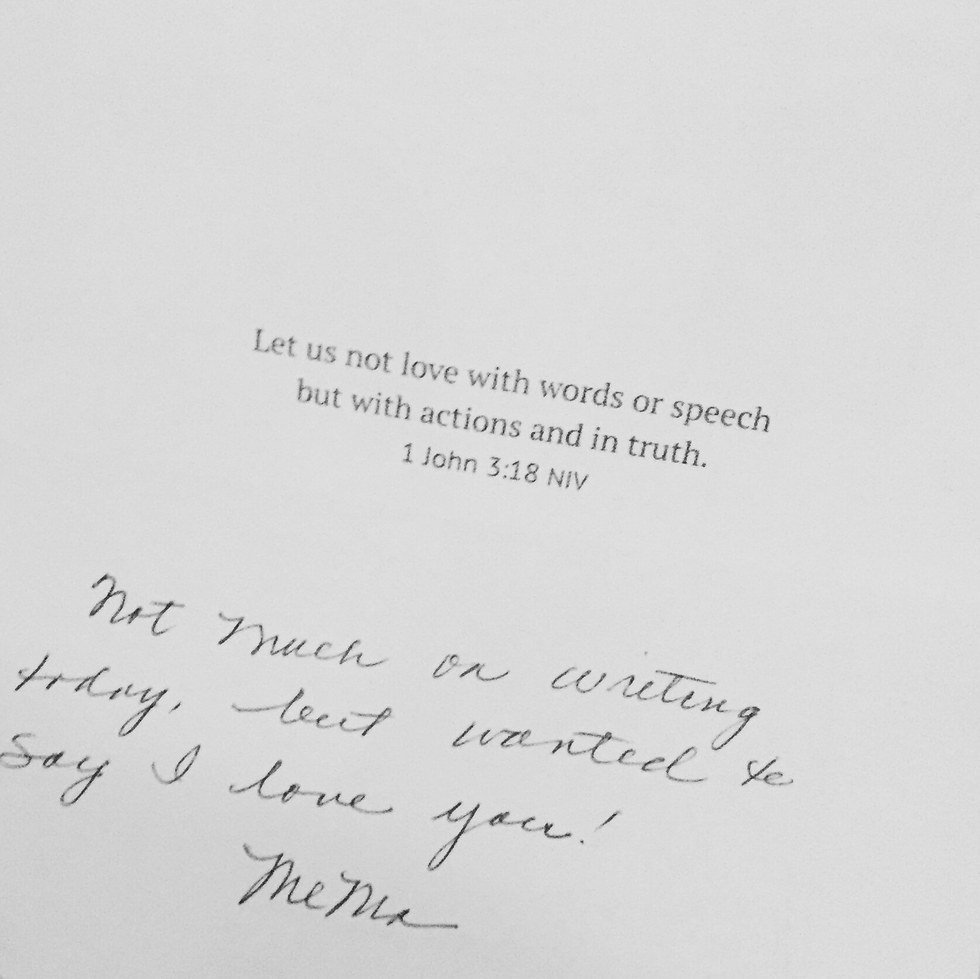 Let us not love with words or speech
but with actions and in truth.
1 John 3:18 NIV
Not much on writing
today, but wanted to
say I love you!
MeMa